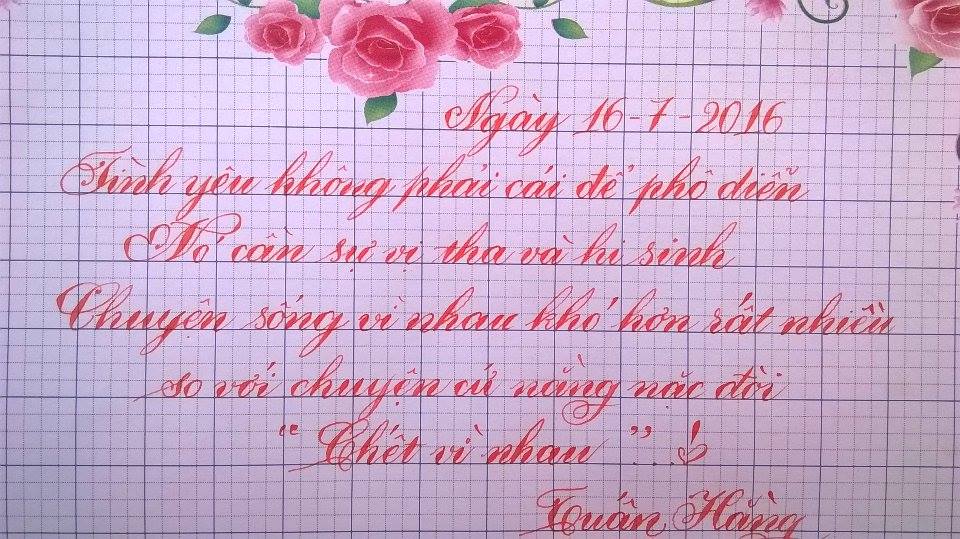 Ngày 16-7-2016
Tình yêu không phải cái để phô diễn
Nó cần sự vị tha và hi sinh
Chuyện sống vì nhau khó hơn rất nhiều
so với chuyện cứ nằng nặc đòi
"Chết vì nhau"...!
Tuấn Hằng